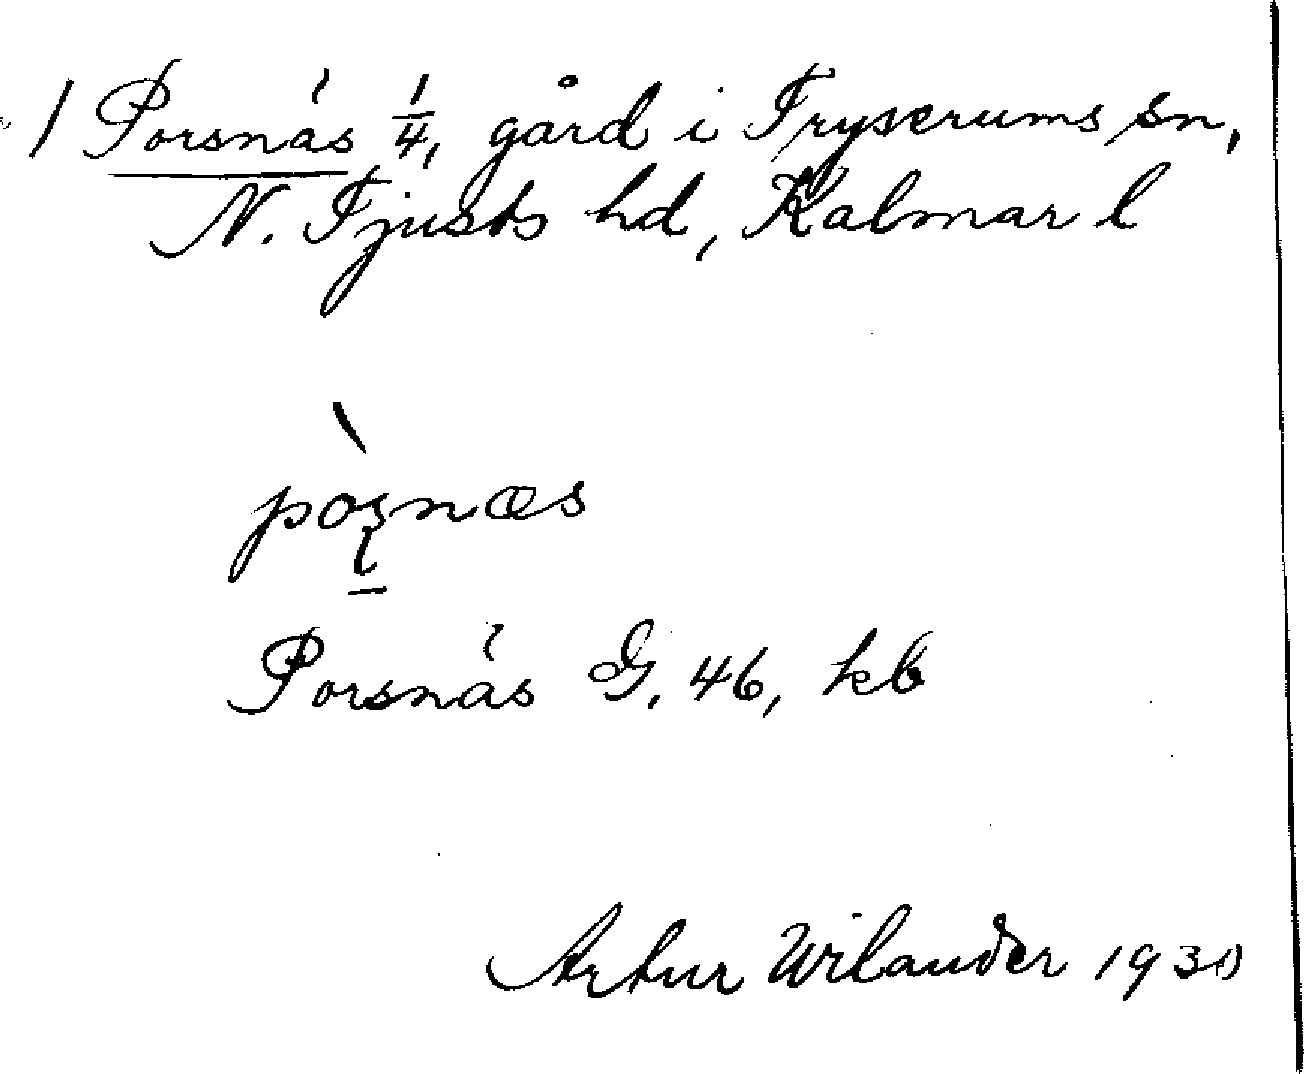 1 Porsnäs 1/4, gård i Tryserums sn,
N. Tjusts hd, Kalmar l
pòʂnæs
Porsnäs G. 46, kb
Artur Wilander 1930